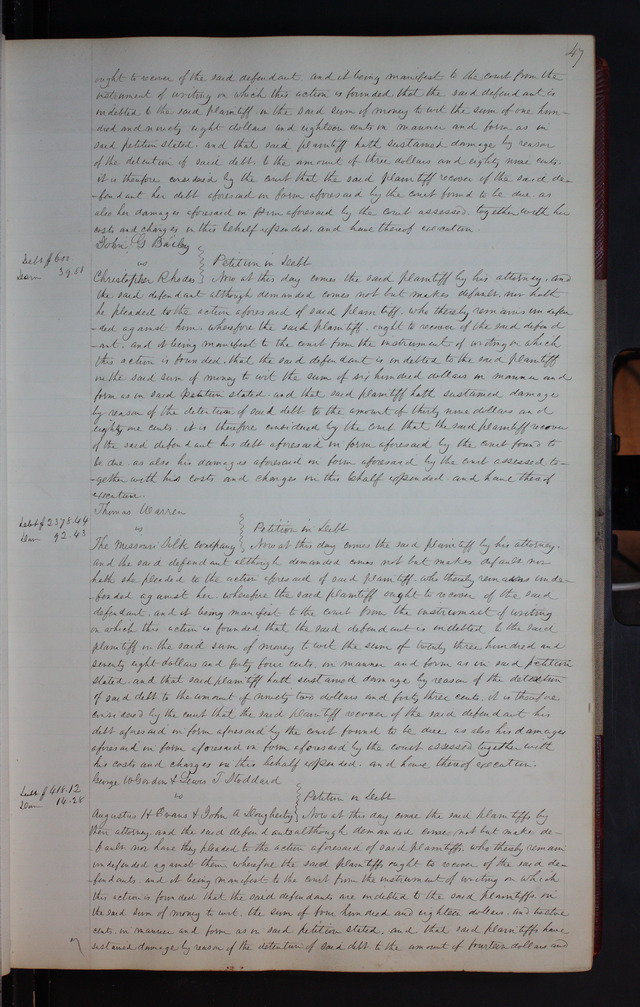 47
ought to recover of the said defendant and it being manifest to the court from the
instrument of writing on which this action is founded that the said defendant is
indebted to the said plaintiff in the said sum of money to wit the sum of one hun-
-dred and ninety eight dollars and eighteen cents in manner and form as in
said petition stated. and that said plaintiff hath sustained damage by reason
of the detention of said debt to the amount of three dollars and eighty nine cents.
it is therefore considered by the court that the said plaintiff recover of the said de-
-fendant her debt aforesaid in form aforesaid by the court found to be due. as
also her damages aforesaid in form aforesaid by the court assessed together with her
costs and charges in this behalf expended. and have thereof execution.
John G Bailey
Debt $600
vs Petition in Debt
Dam 39.81
Christopher Rhodes Now at this day comes the said plaintiff by his attorney, and
the said defendant although demanded comes not but makes default. nor hath
he pleaded to the action aforesaid of said plaintiff. who thereby remains undefen-
-ded against him. wherefore the said plaintiff ought to recover of the said defend
-ant. and it being manifest to the court from the instrument of writing on which
this action is founded, that the said defendant is indebted to the said plaintiff
in the said sum of money to wit the sum of six hundred dollars in manner and
form as in said petition stated. and that said plaintiff hath sustained damage
by reason of the detention of said debt to the amount of thirty nine dollars and
eighty one cents. it is therefore considered by the court that the said plaintiff recover
of the said defendant his debt aforesaid in form aforesaid by the court found to
be due. as also his damages aforesaid in form aforesaid by the court assessed to-
-gether with his costs and charges in this behalf expended. and have thereof
execution.
Thomas Warren
Debt $2378.44
vs Petition in Debt
Dam 92.43
The Missouri Silk company Now at this day comes the said plaintiff by his attorney.
and the said defendant although demanded comes not but makes default nor
hath she pleaded to the action aforesaid of said plaintiff. who thereby remains unde-
-fended against her. wherefore the said plaintiff ought to recover of the said
defendant. and it being manifest to the court from the instrument of writing
on which this action is founded that the said defendant is indebted to the said
plaintiff in the said sum of money to wit the sum of twenty three hundred and
seventy eight dollars and forty four cents. in manner and form as in said petition
stated. and that said plaintiff hath sustained damage by reason of the detention
of said debt to the amount of ninety two dollars and forty three cents. it is therefore
considered by the court that the said plaintiff recover of the said defendant his
debt aforesaid in form aforesaid by the court found to be due. as also his damages
aforesaid in form aforesaid in form aforesaid by the court assessed together with
his costs and charges in this behalf expended. and have thereof execution.
George W Gordon & Lewis T. Stoddard
Debt $418.12
vs Petition in Debt
Dam 14.28
Augustus H Evans & John A Dougherty Now at this day come the said plaintiffs by
their attorney. and the said defendants although demanded come not but make de-
-fault. nor have they pleaded to the action aforesaid of said plaintiffs, who thereby remain
undefended against them wherefore the said plaintiffs ought to recover of the said de-
fendants. and it being manifest to the court from the instrument of writing on which
this action is founded that the said defendants are indebted to the said plaintiffs. in
the said sum of money to wit. the sum of four hundred and eighteen dollars. and twelve
cents. in manner and form as in said petition stated. and that said plaintiffs have
sustained damage by reason of the detention of said debt to the amount of fourteen dollars and